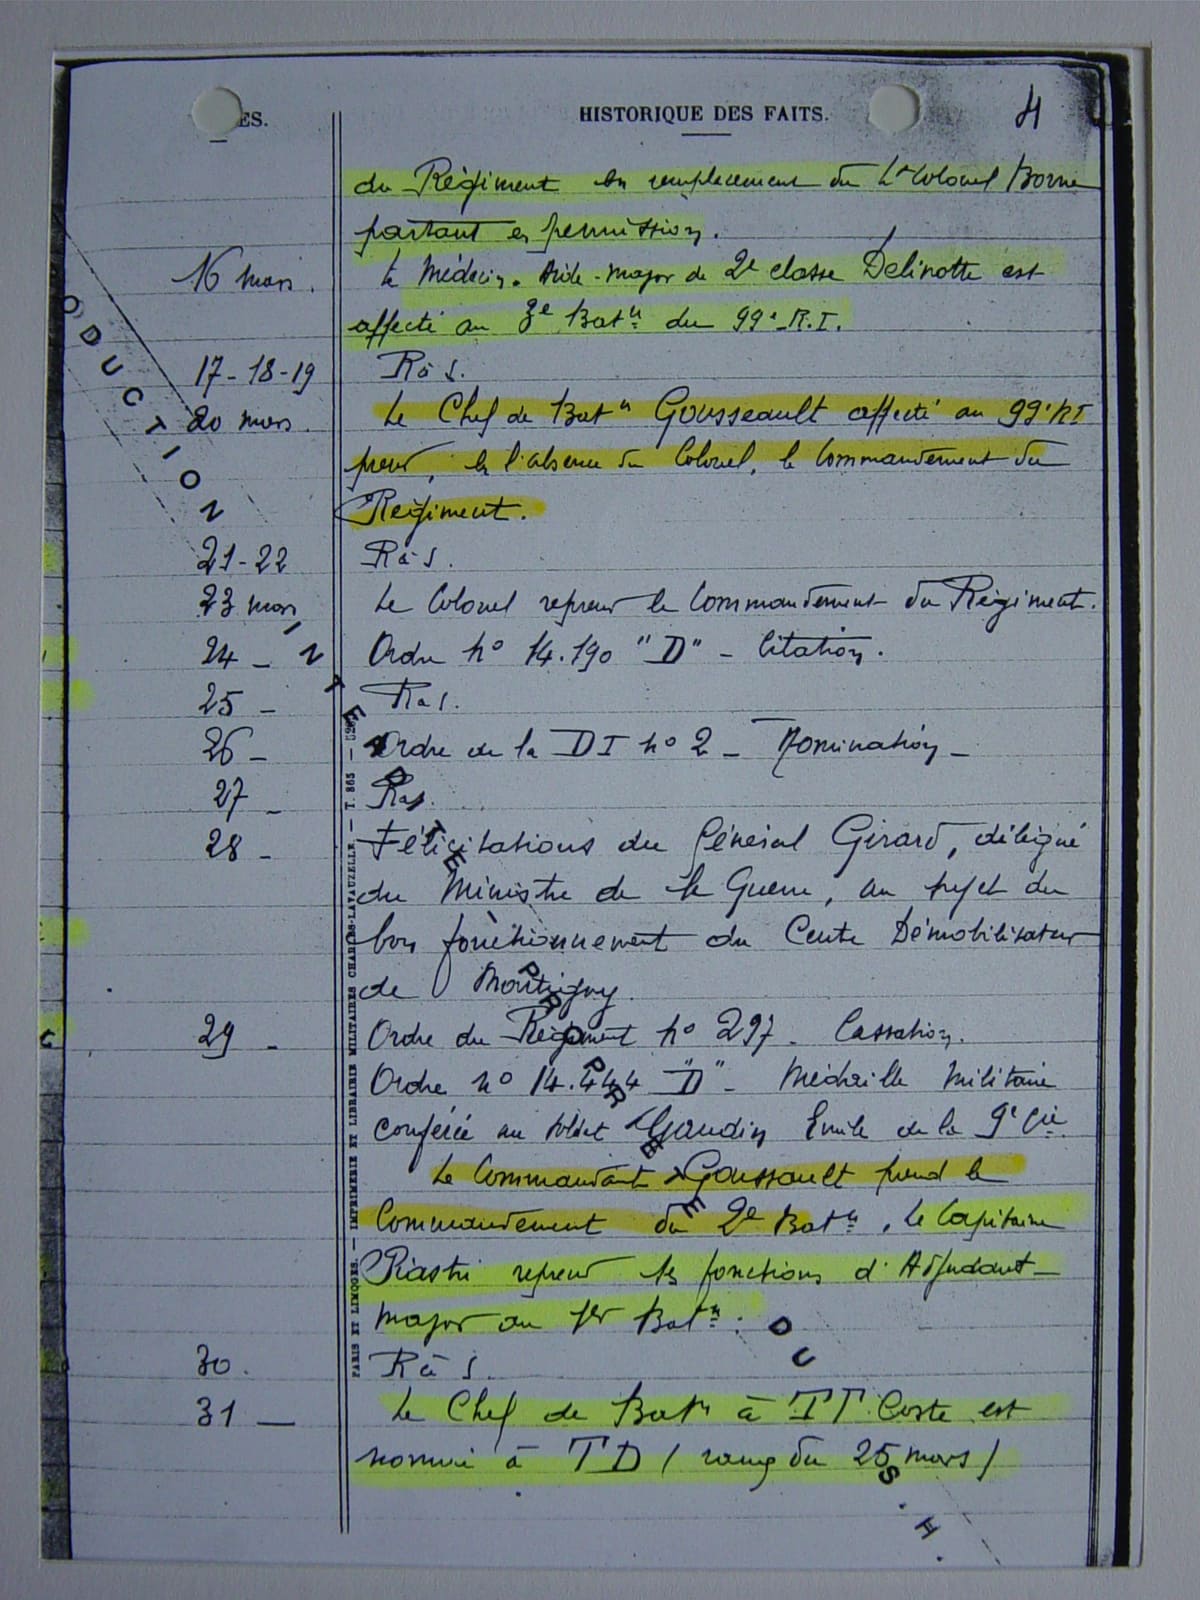 ES. HISTORIQUE DES FAITS. 4
du Régiment en remplacement du Lt Colonel Borne
partant en permission.
16 mars. Le Médecin. Aide-major de 2e classe Delinotte est
affecté au 3e Batn du 99e R.I.
17-18-19 RàS.
20 mars. Le Chef de Batn Gousseault affecté au 99e RI
prend, en l'absence du Colonel, le Commandement du
Régiment.
21-22 RàS.
23 mars Le Colonel reprend le Commandement du Régiment.
24 - Ordre No 14.190 "D" - Citation.
25 - RàS.
26 - Ordre de la DI No 2 - Nomination -
27 - Ras.
28 - Félicitations du Général Girard, délégué
du Ministre de la Guerre, au sujet du
bon fonctionnement du Centre Démobilisateur
de Montigny.
29 - Ordre du Régiment No 297 - Cassation.
Ordre No 14.444 "D" - Médaille Militaire
conférée au soldat Gaudin Emile de la 9e Cie
Le Commandant Goussault prend le
Commandement du 2e Batn. Le Capitaine
reprend les fonctions d'Adjudant-
major au 1er Batn.
30. RàS.
31 - Le Chef de Batn à TT Coste est
nommé à TD (rang du 25 mars)
PARIS ET LIMOGES. — IMPRIMERIE ET LIBRAIRIE MILITAIRES CHARLES-LAVAUZELLE. — T. 865 —
ODUCTION INTERDITE PROPRIETE DU S.H.